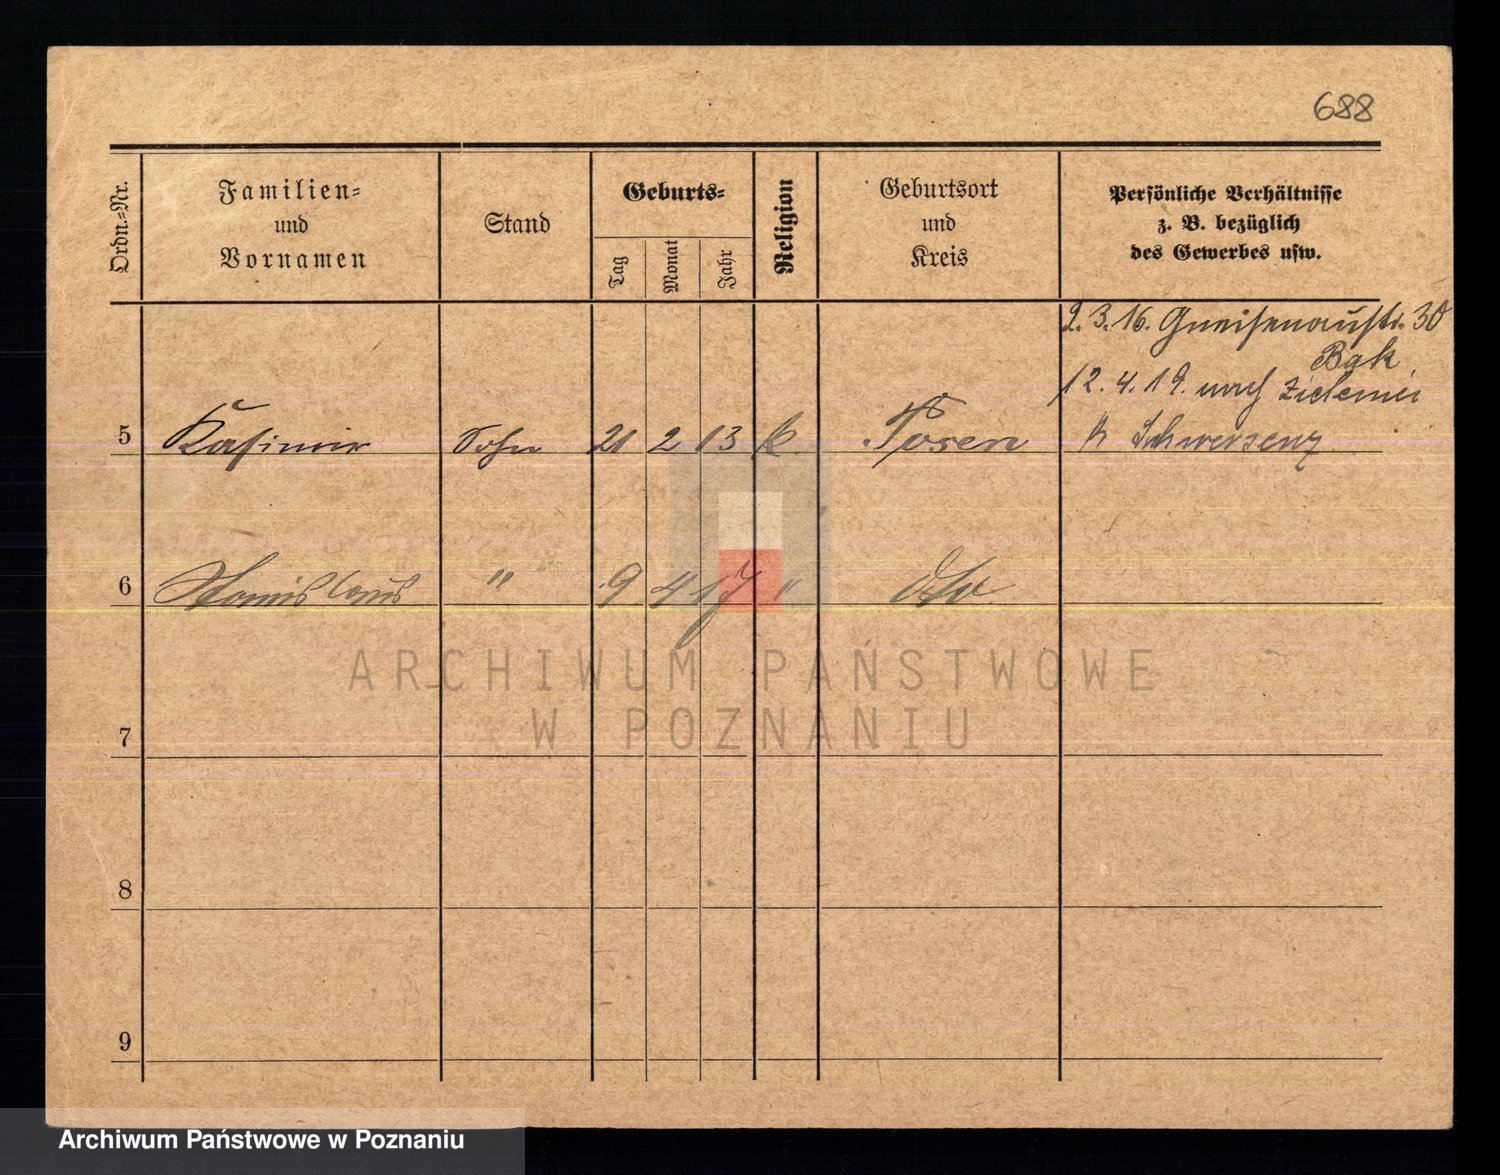 688
Ordn.-Nr.
Familien-
und
Vornamen
Stand
Geburts-
Tag
Monat
Jahr
Religion
Geburtsort
und
Kreis
Persönliche Verhältnisse
z. B. bezüglich
des Gewerbes usw.
2.3.16. Gneisenaustr. 30
Bak
12.4.19. nach Zieleniec
5 Kasimir Sohn 21 2 13 k. Posen
Schwersenz
6 Stanislaus " 9 4 17 " dto.
7
8
9
ARCHIWUM PAŃSTWOWE
W POZNANIU
Archiwum Państwowe w Poznaniu